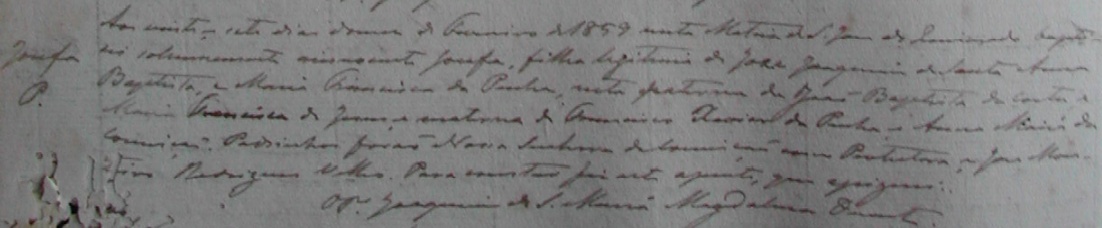 Aos vinte e sete dias do mez de Fevereiro de 1859 nesta Matriz de S. Jose de baptí-
Josefa
zei solemnemente innocente Josefa, filha legitima de Joze Joaquim de Santa Anna
P.
Baptista, e Maria Francisca da Penha, neta paterna de João Baptista da Costa e
Maria Francisca de Jesus, e materna de Francisco Xavier da Penha e Anna Maria da
Conceiçaõ. Padrinhos foraõ Nossa Senhora da Conceiçaõ como Protectora, e Jose
Rodrigues Velho. Para constar fiz este assento, que assignei.
O P.e Joaquim de S. Maria Magdalena Duarte.